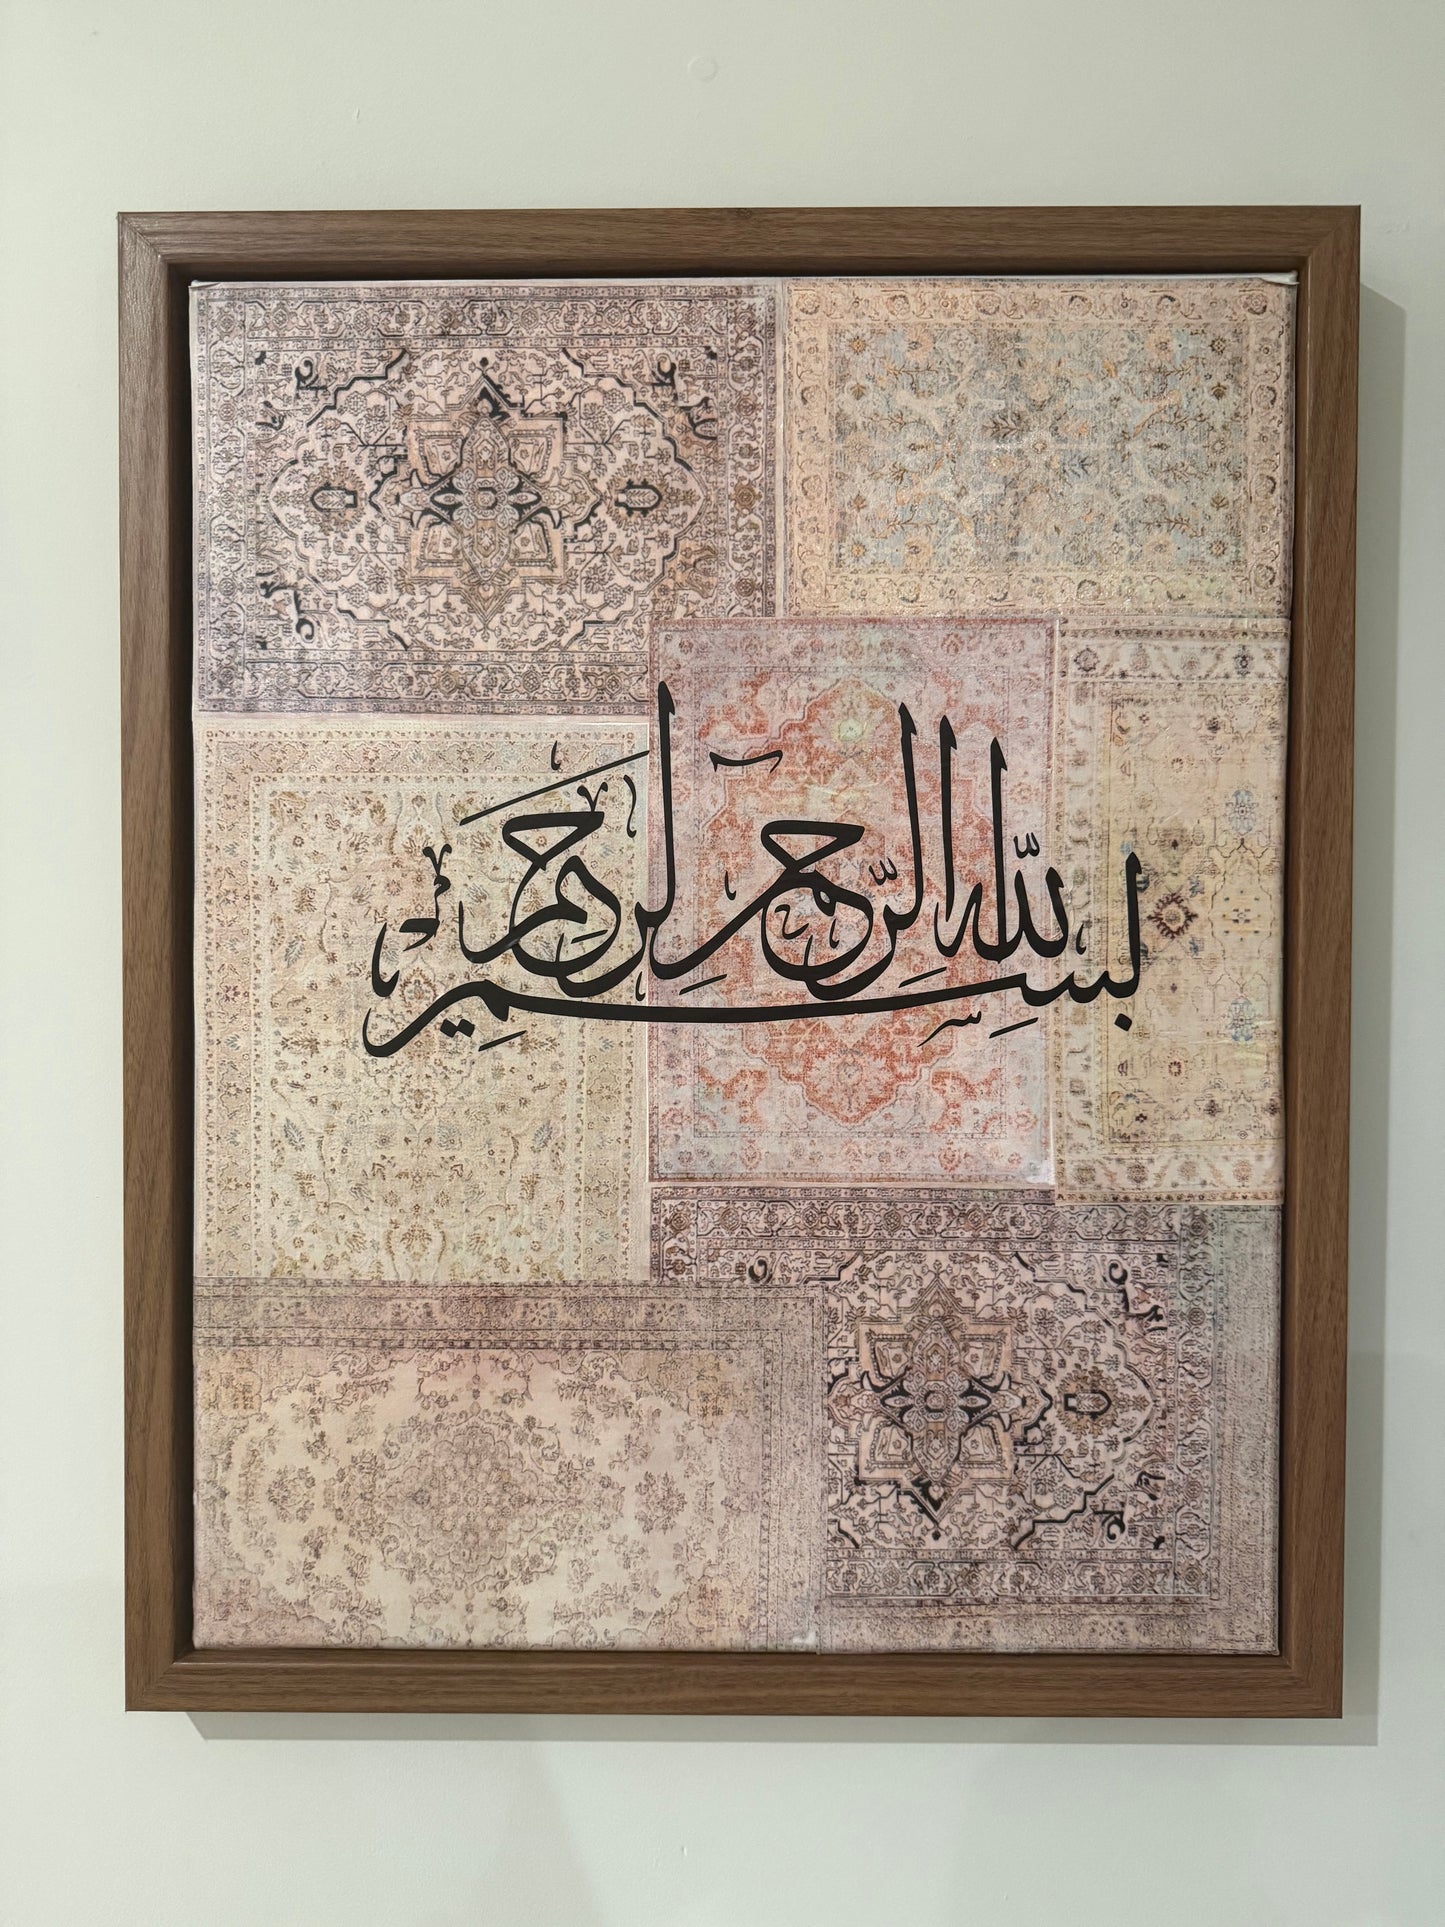 بسم الله الرّحمن الرحيم